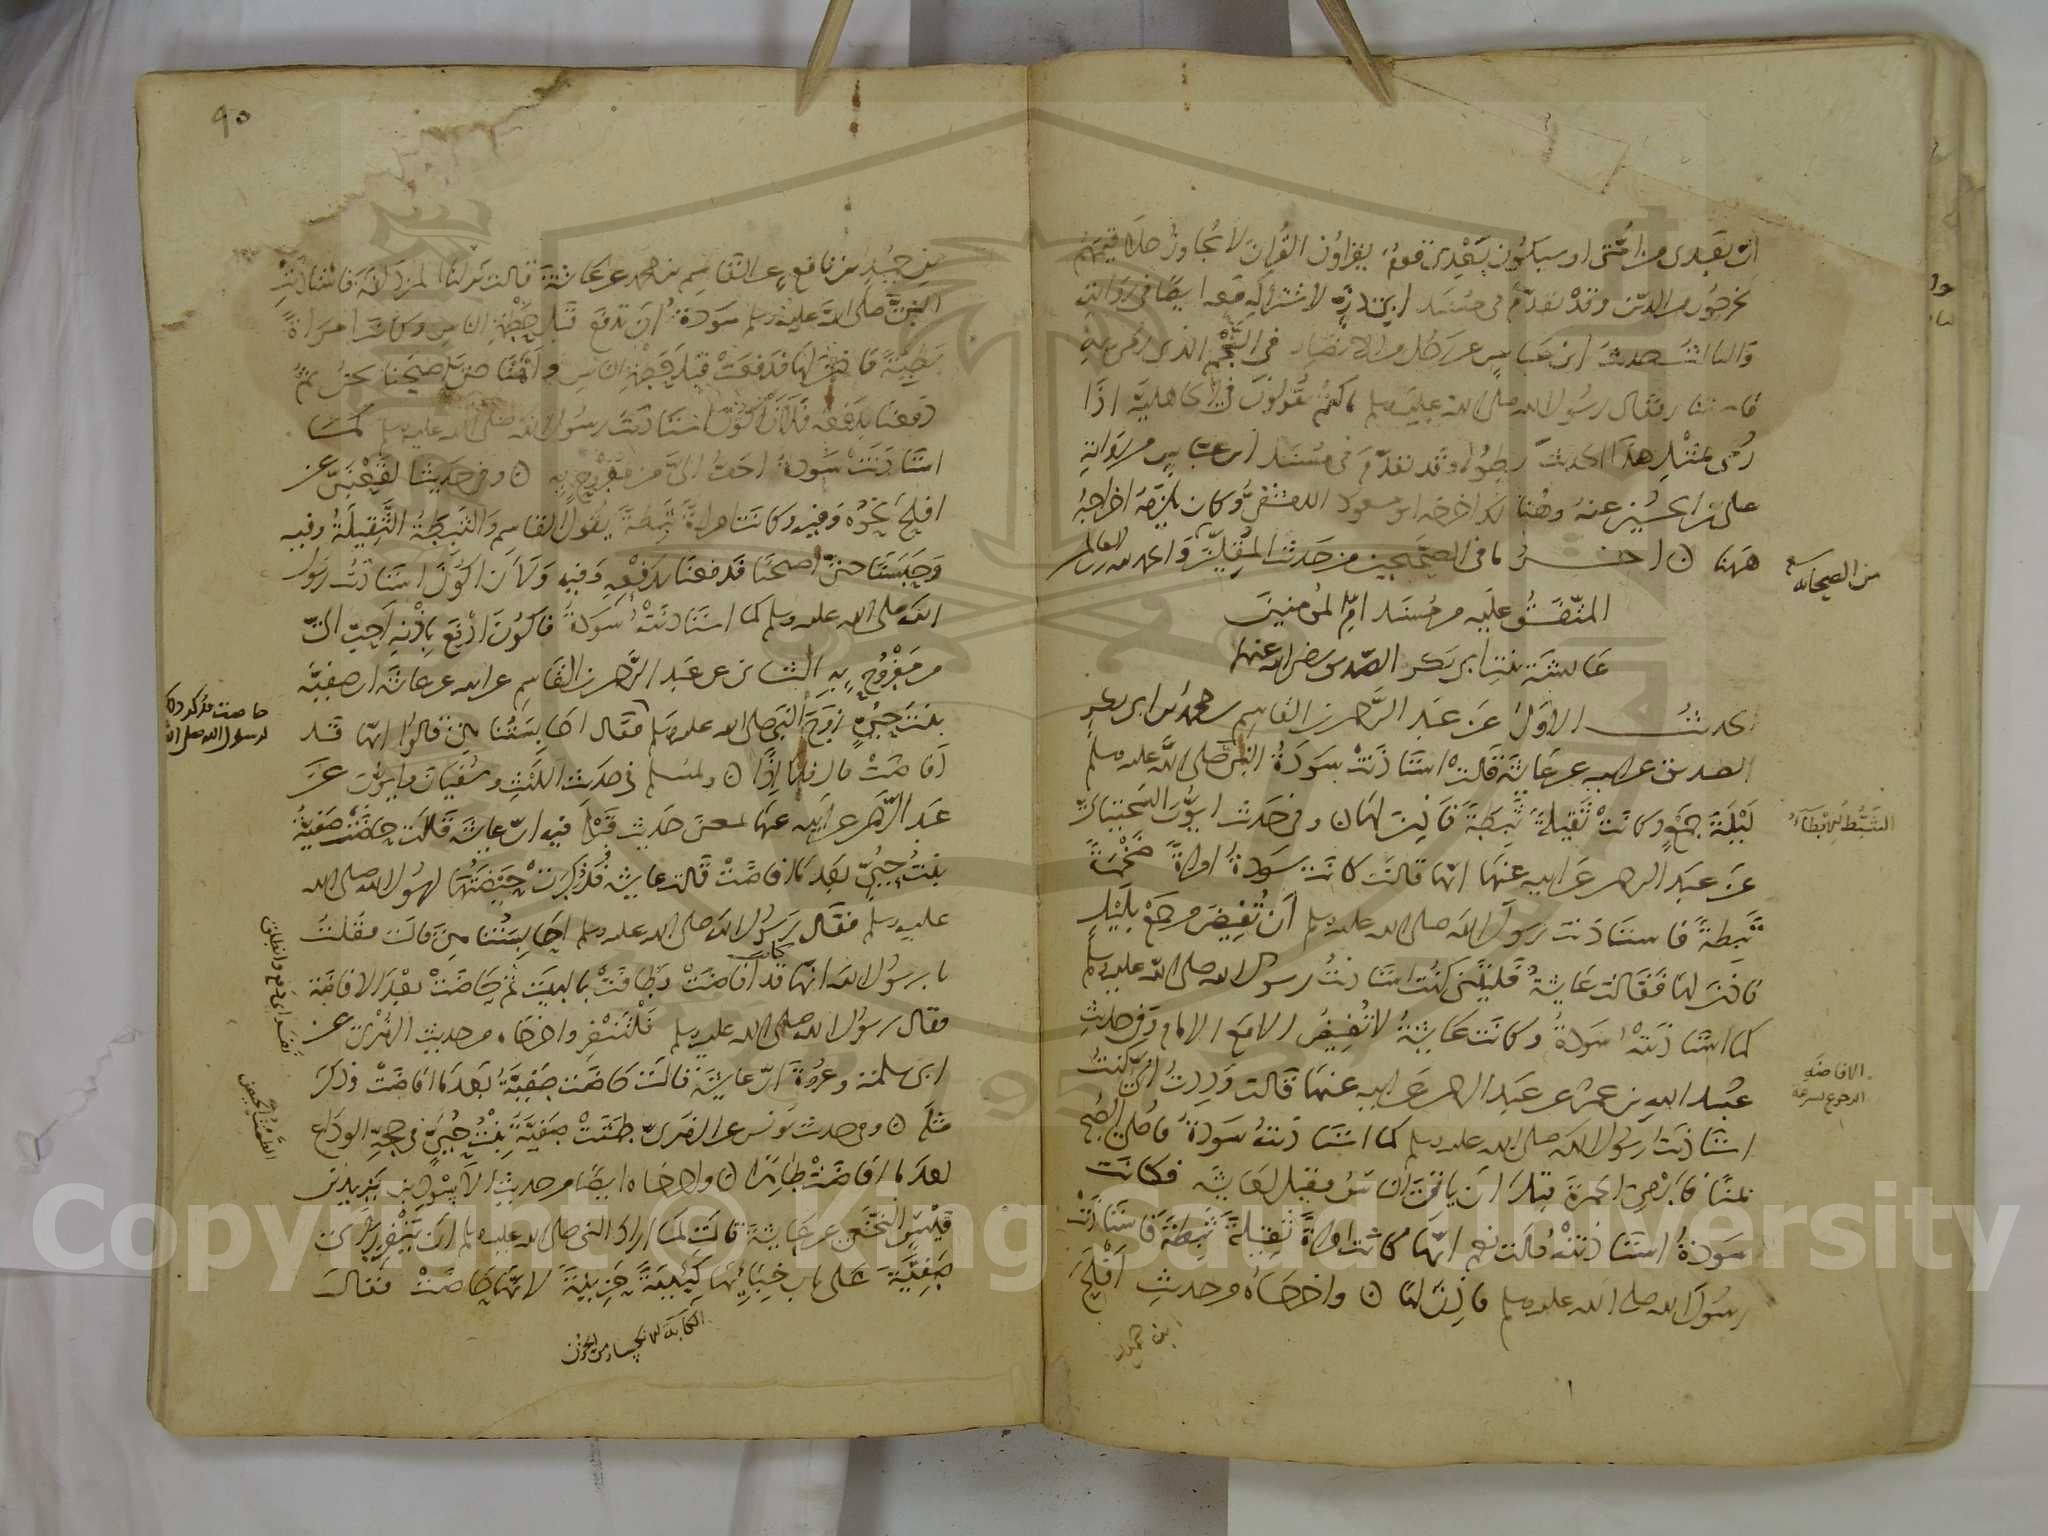 ان بعدى من امتى او سيكون بعدى قوم يقراون القران لا يجاوز حلاقيمهم
يخرجون من الدين وقد تقدم فى مسند ابى ذر لاشتراكه معه ايضا فى روايته
والثالث حديث ابن عباس عن رجل من الانصار فى النجم الذى رمى به
فاستنار فقال رسول الله صلى الله عليه وسلم ما كنتم تقولون فى الجاهلية اذا
رمى بمثل هذا الحديث بطوله وقد تقدم فى مسند ابن عباس من رواية
على بن الحسين عنه وهنا ذكر اخرجه ابو مسعود الدمشقى وكان يلزمه اخراجه
ههنا ن اخر ما فى الصحيحين من حديث المقلين والحمد لله رب العالمين
من الصحابه
المتفق عليه من مسند ام المومنين
عايشة بنت ابى بكر الصديق رضى الله عنهما
الحديث الاول عن عبد الرحمن بن القاسم بن محمد بن ابى بكر
الصديق عن ابيه عن عايشة قالت استاذنت سودة النبى صلى الله عليه وسلم
ليلة جمع وكانت ثقيلة ثبطة فاذن لها ن وفى حديث ايوب السختيانى
التثبط الابطاء
عن عبد الرحمن عن ابيه عنها انها قالت كانت سودة امراة ضخمة
ثبطة فاستاذنت رسول الله صلى الله عليه وسلم ان تفيض من جمع بليل
فاذن لها فقالت عايشة فليتنى كنت استاذنت رسول الله صلى الله عليه وسلم
كما استاذنته سودة وكانت عايشة لا تفيض الا مع الامام وفى حديث
الافاضه
الرجوع بسرعة
عبيد الله بن عمر عن عبد الرحمن عن ابيه عنها قالت وددت انى كنت
استاذنت رسول الله صلى الله عليه وسلم كما استاذنته سودة فاصلى الصبح
بمنا فارمى الجمرة قبل ان ياتى الناس فقيل لعايشة فكانت
سودة استاذنته قالت نعم انها كانت امراة ثقيلة ثبطة فاستاذنت
رسول الله صلى الله عليه وسلم فاذن لها ن واخرجاه من حديث افلح
ابن حميد
٩٥
بن حميد بن نافع عن القاسم بن محمد عن عايشة قالت نزلنا المزدلفة فاستاذنت
النبى صلى الله عليه وسلم سودة ان تدفع قبل حطمة الناس وكانت امراة
بطيئة فاذن لها فدفعت قبل حطمة الناس واقمنا حتى اصبحنا نحن ثم
دفعنا بدفعه فلان اكون استاذنت رسول الله صلى الله عليه وسلم كما
استاذنت سودة احب الى من مفروح به ن وفى حديث القعنبى عن
افلح نحوه وفيه وكانت امراة ثبطة يقول القاسم والثبطة الثقيلة وفيه
وحبسنا حتى اصبحنا فدفعنا بدفعه وفيه ولان اكون استاذنت رسول
الله صلى الله عليه وسلم كما استاذنته سودة فاكون ادفع باذنه احب الى
من مفروح به الثانى عن عبد الرحمن بن القاسم عن ابيه عن عايشة ان صفية
بنت حيى زوج النبى صلى الله عليه وسلم فقال احابستنا هى قالوا انها قد
حاضت فذكر ذلك
لرسول الله صلى الله
افاضت قال فلا اذا ن ولمسلم فى حديث الليث وسفيان وايوب عن
عبد الرحمن عن ابيه عنها بمعنى حديث قبله فيه ان عايشة قالت حاضت صفية
بنت حيى بعد ما افاضت قالت عايشة فذكرت حيضتها لرسول الله صلى الله
عليه وسلم فقال رسول الله صلى الله عليه وسلم احابستنا هى قالت فقلت
يا رسول الله انها قد كانت افاضت وطافت بالبيت ثم حاضت بعد الافاضة
فقال رسول الله صلى الله عليه وسلم فلتنفر واخرجاه من حديث الزهرى عن
ابى سلمة وعروة ان عايشة قالت حاضت صفية بعد ما افاضت وذكر
مثله ن وفى حديث يونس عن الزهرى طمثت صفية بنت حيى فى حجة الوداع
الطمث الحيض
بعد ما افاضت طاهرا ن واخرجاه ايضا من حديث الاسود بن يزيد بن
قيس النخعى عن عايشة قالت لما اراد النبى صلى الله عليه وسلم ان ينفر راى
صفية على باب خبايها كئيبة حزينة لانها حاضت فقال
الكابة الانكسار من الحزن
Copyright © King Saud University